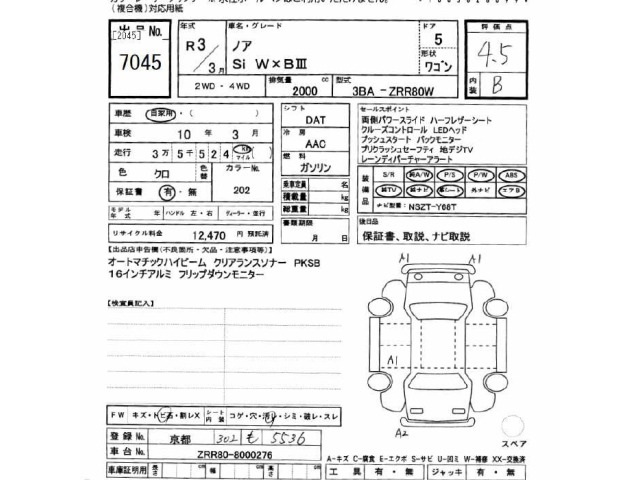 (複合機)対応用紙
出品No.
[2045]
7045
年式
R3/3月
車名・グレード
ノア
Si W×BⅢ
ドア
5
形状
ワゴン
2WD・4WD
排気量
2000
cc
型式
3BA-ZRR80W
評価点
4.5
内装
B
車歴
自家用
車検
10年 3月
走行
3万5千524
km
マイル
色
クロ
色替
カラーNo.
202
保証書
有・無
モデル年式
年
ハンドル 左・右
ディーラー・並行
リサイクル料金
12,470円 預託済
シフト
DAT
冷房
AAC
燃料
ガソリン
乗車定員
名
積載量
kg
総重量
kg
書類期限
月 日
セールスポイント
両側パワースライド ハーフレザーシート
クルーズコントロール LEDヘッド
プッシュスタート バックモニター
プリクラッシュセーフティ 地デジTV
レーンディパーチャーアラート
装備品
S/R 純A/W P/S P/W ABS
純TV 純ナビ 革シート 外ナビ エアB
ナビ型番: NSZT-Y66T
後日品
保証書、取説、ナビ取説
【出品店申告欄(不良箇所・欠品・注意事項等)】
オートマチックハイビーム クリアランスソナー PKSB
16インチアルミ フリップダウンモニター
【検査員記入】
A1
A1
A1
A2
スペア
FW
キズ・トビ石・割レX
シート内装
コゲ・穴・汚レ・シミ・破レ・スレ
登録No.
京都 302 も 5536
車台No.
ZRR80-8000276
A-キズ C-腐食 E-エクボ S-サビ U-凹ミ W-補修 XX-交換済
車庫証明用
長さ
cm
幅
cm
高さ
cm
工具
有・無
ジャッキ
有・無